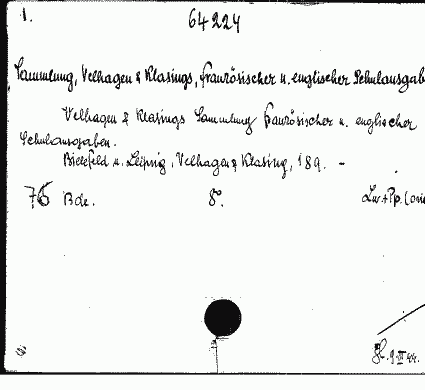 1.
64224
Sammlung, Velhagen & Klasings, französischer u. englischer Schulausgab
Velhagen & Klasings Sammlung französischer u. englischer
Schulausgaben.
Bielefeld u. Leipzig, Velhagen & Klasing, 189. -
76 Bde. 8°. Lw. + Pp. (ori
9. II 44.